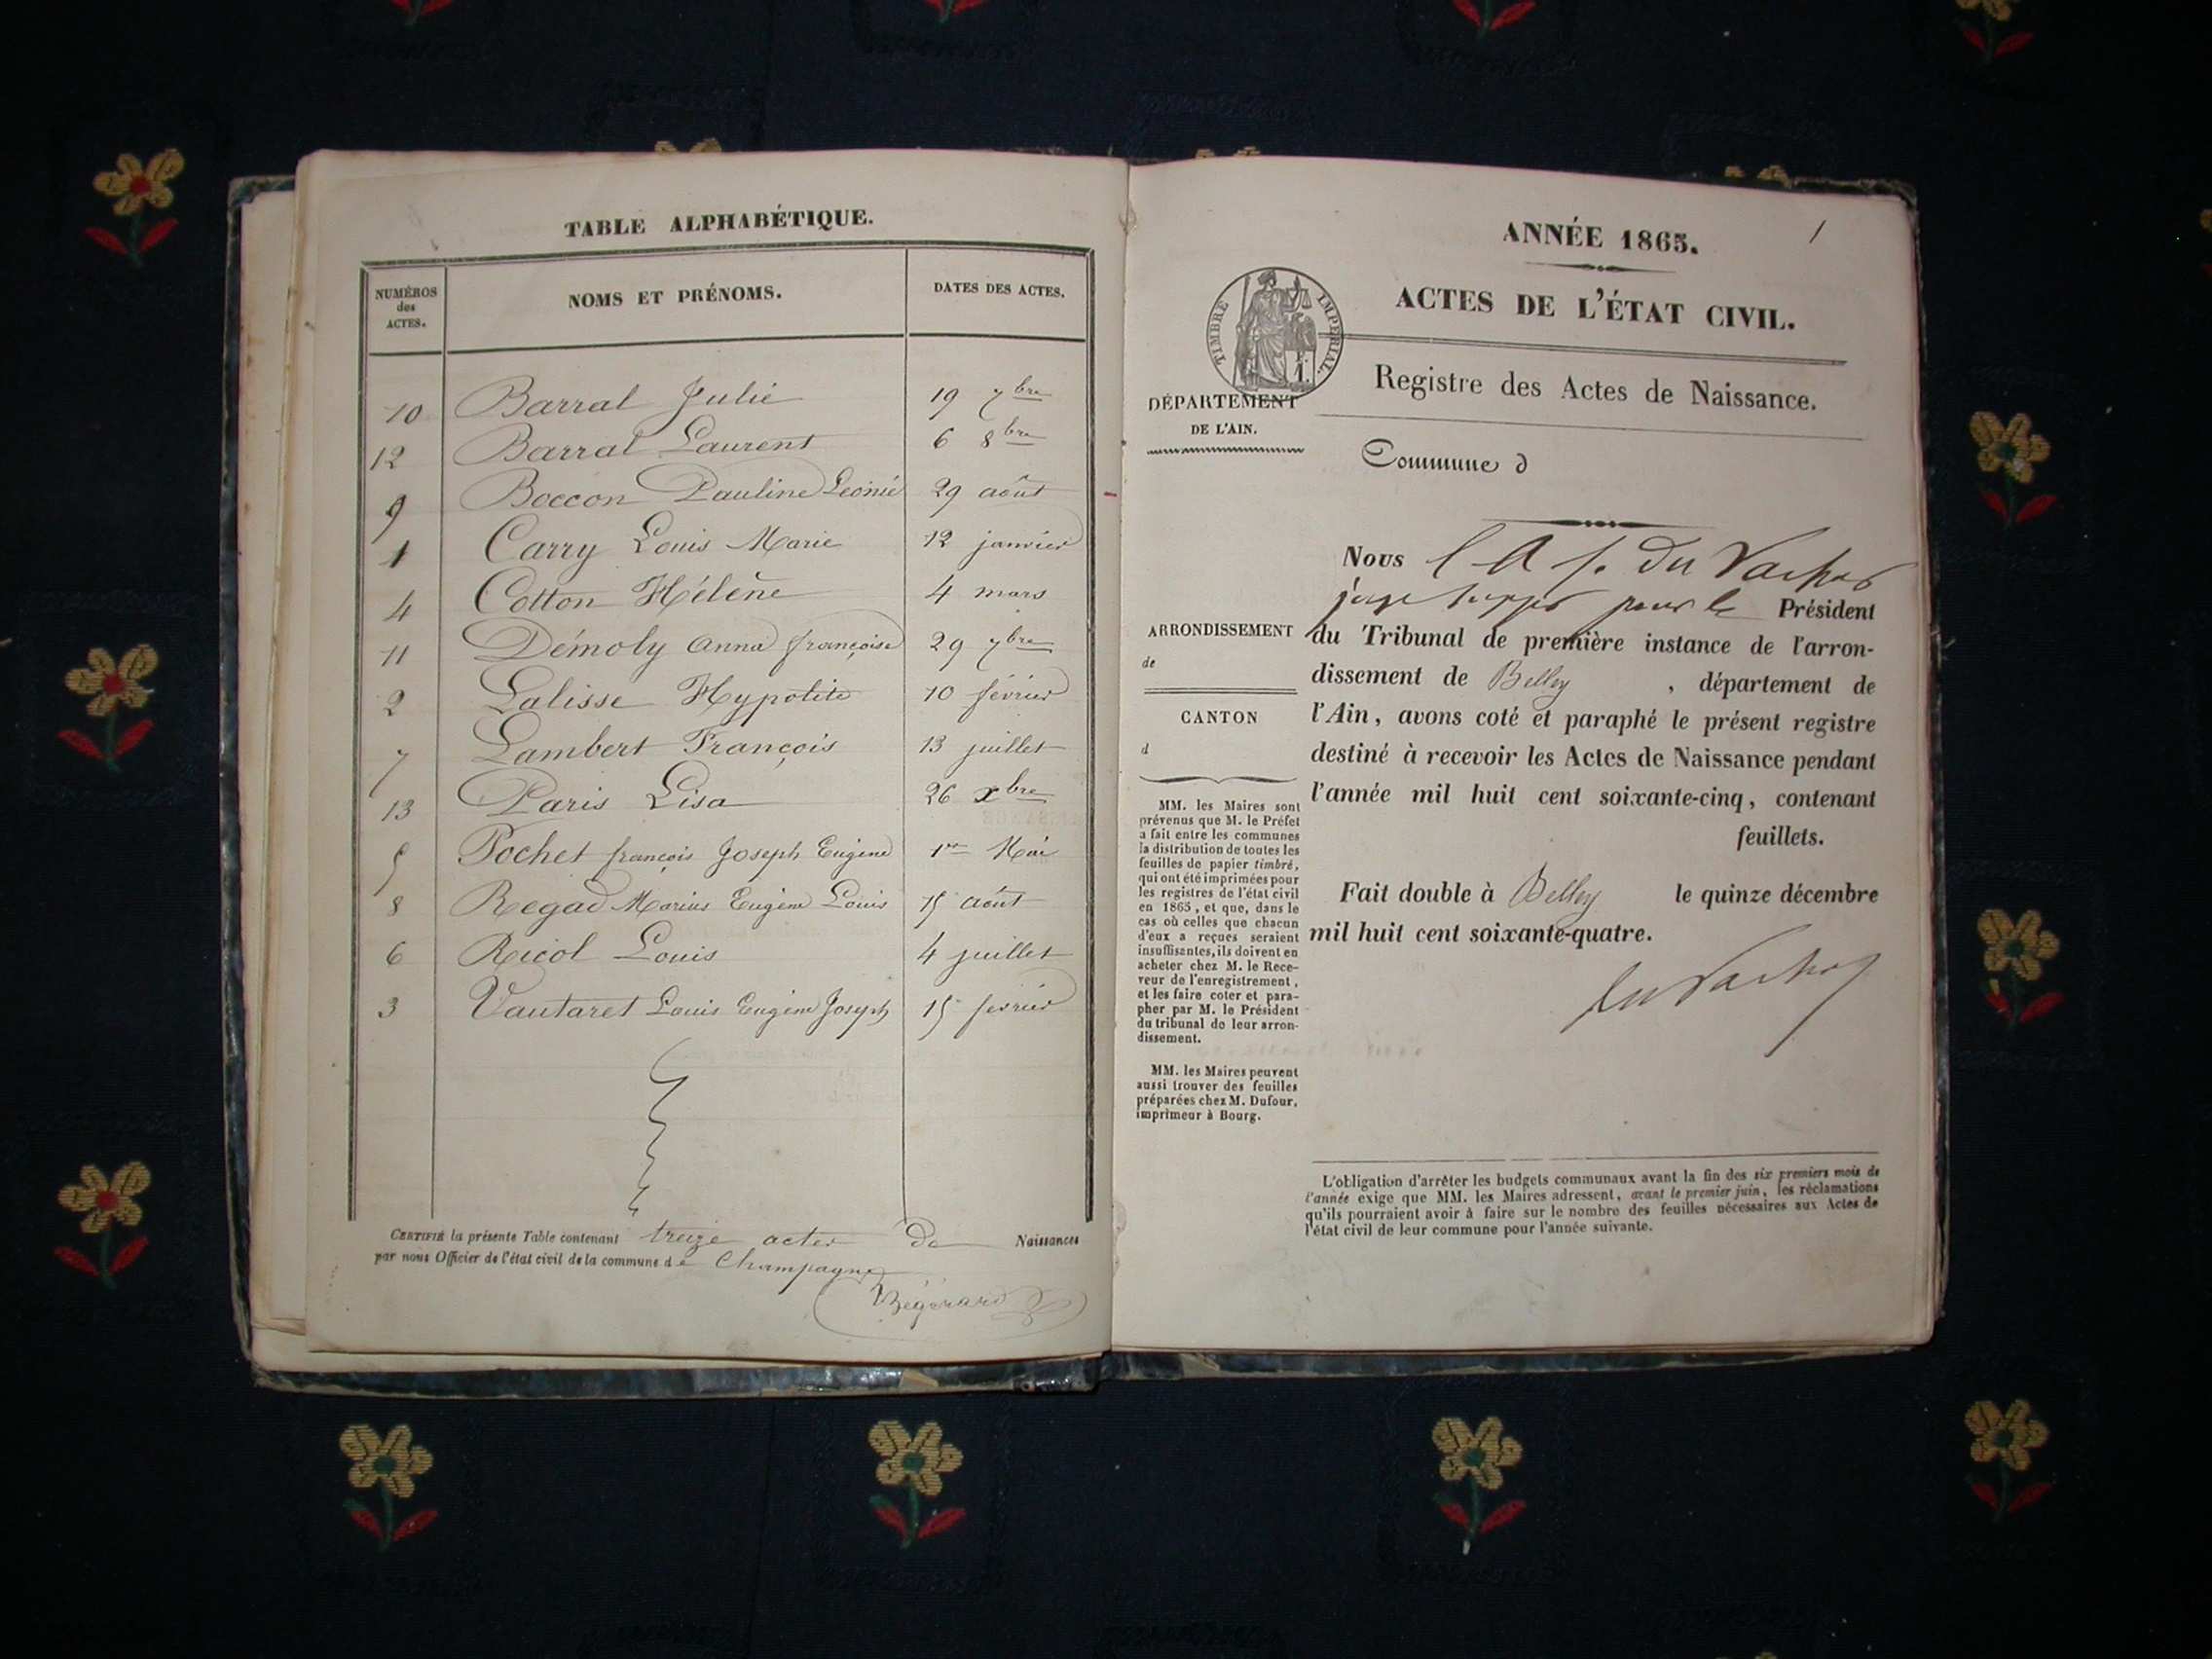 TABLE ALPHABÉTIQUE.
NUMÉROS
des
ACTES.
NOMS ET PRÉNOMS.
DATES DES ACTES.
10 Barral Julie 19 7bre
12 Barral Laurent 6 8bre
9 Boccon Pauline Leonie 29 août
1 Carry Louis Marie 12 janvier
4 Cotton Hélène 4 mars
11 Démoly Anna françoise 29 7bre
2 Lalisse Hypolite 10 février
7 Lambert François 13 juillet
13 Paris Lisa 26 Xbre
5 Pochet françois Joseph Eugène 1er Mai
8 Regad Marius Eugène Louis 15 août
6 Ricol Louis 4 juillet
3 Vautaret Louis Eugène Joseph 15 fevrier
CERTIFIÉ la présente Table contenant treize actes de Naissances
par nous Officier de l'état civil de la commune de Champagne
Bégérard
1
ANNÉE 1865.
ACTES DE L'ÉTAT CIVIL.
TIMBRE IMPÉRIAL.
Registre des Actes de Naissance.
DÉPARTEMENT
DE L'AIN.
Commune d
ARRONDISSEMENT
de
CANTON
d
MM. les Maires sont
prévenus que M. le Préfet
a fait entre les communes
la distribution de toutes les
feuilles de papier timbré,
qui ont été imprimées pour
les registres de l'état civil
en 1865, et que, dans le
cas où celles que chacun
d'eux a reçues seraient
insuffisantes, ils doivent en
acheter chez M. le Rece-
veur de l'enregistrement,
et les faire coter et para-
pher par M. le Président
du tribunal de leur arron-
dissement.
MM. les Maires peuvent
aussi trouver des feuilles
préparées chez M. Dufour,
imprimeur à Bourg.
Nous du
juge pour le Président
du Tribunal de première instance de l'arron-
dissement de Belley, département de
l'Ain, avons coté et paraphé le présent registre
destiné à recevoir les Actes de Naissance pendant
l'année mil huit cent soixante-cinq, contenant
feuillets.
Fait double à Belley le quinze décembre
mil huit cent soixante-quatre.
L'obligation d'arrêter les budgets communaux avant la fin des six premiers mois de
l'année exige que MM. les Maires adressent, avant le premier juin, les réclamations
qu'ils pourraient avoir à faire sur le nombre des feuilles nécessaires aux Actes de
l'état civil de leur commune pour l'année suivante.